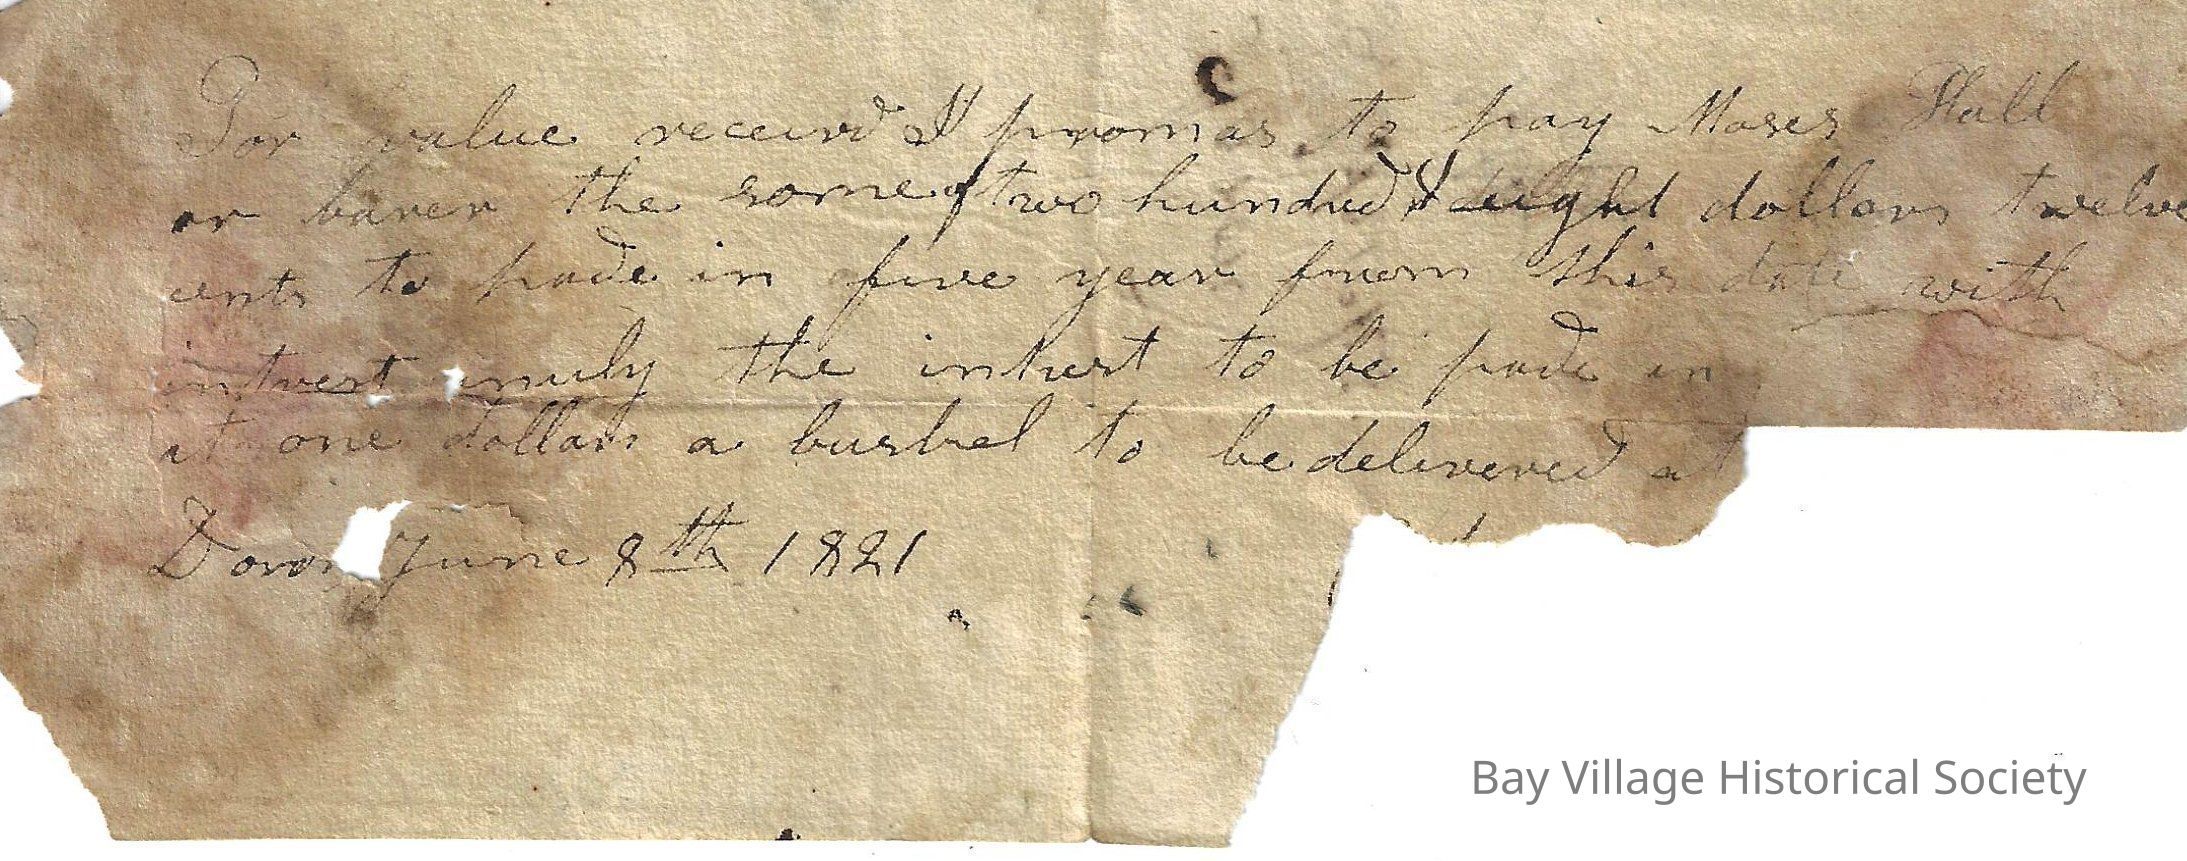 For value receivd I promas to pay Moses Hall
or barer the some of two hundred & eight dollars twelve
cents to pade in five year from this date with
intrest anuly the intrest to be pade in
at one dollars a bushel to be delivered at
Dover June 8th 1821
Bay Village Historical Society